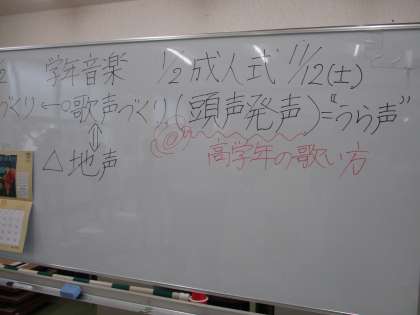 /2 学年音楽 1/2成人式 11/12(土)
づくり←○歌声づくり(頭声発声)="うら声"
⇕
高学年の歌い方
△地声